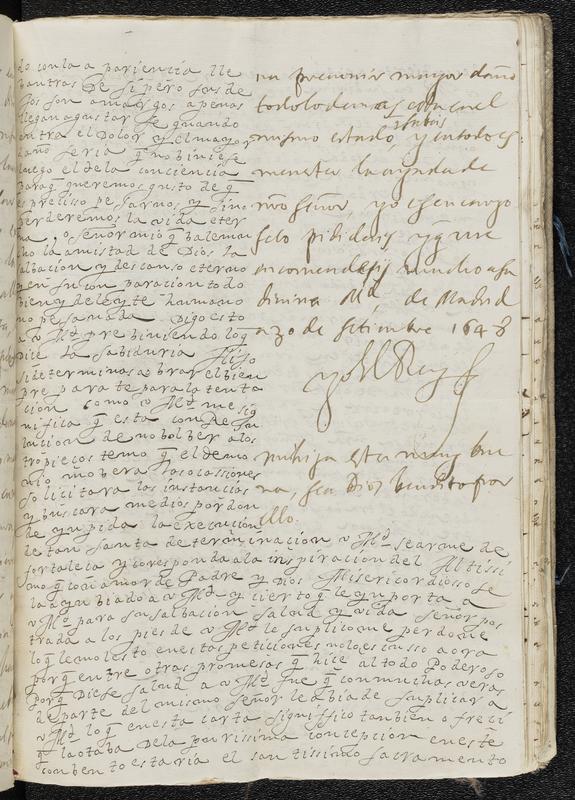 do con la apariencia lle
bantras De si pero sus de
jos son amargos apenas
llegan a gustar se quando
entra el Dolor y el mayor
daño seria q̃ no biniese
luego el de la conciencia
Paraq̃ queremos gusto de q̃
es preciso pesarnos y sino
Perderemos la vida eter
na, o señor mio q̃ balema
cho la amistad de Dios la
salbacion y descanso eterno
y en su conparacion todo
bien y deleyte humano
no pesa nada Digo esto
a v Mᵈ prebiniendo loq̃
Dice la Sabiduria Hijo
si determinas obrar el bien
pre para te para la tenta
cion como v Mᵈ me sig
nifica q̃ esta con Resu
lucion de no bolber a los
tropieços temo q̃ el demo
nio mobera las ocassiones
solicitara las instancias
y buscara medios por don
de ynpida la execucion
de tan santa determinacion v Mᵈ se arme de
fortaleça y coresponda a la inspiracion del Altissi
mo q̃ con amor de Padre y Dios Misericordiosso se
la a ynbiado a v Mᵈ y cierto q̃ le ynporta a
v Mᵈ para su salbacion salud y vida señor pos
trada a los pies de v Mᵈ le suplico me perdone
loq̃ le molesto en estas peticiones no lo escusso aora
porq̃ entre otras promesas q̃ hice al todo Poderoso
Porq̃ Diese salud a v Mᵈ fue q̃ con muchas veras
de parte del mismo señor le abia de suplicar a
v Mᵈ loq̃ en esta carta significo tanbien ofreci
q̃ la otaba De la purissima concepcion en este
conbento estaria el santissimo sacramento
na prevenir mayor daño
todo lo demas esta en el
mismo estado y en todo es
menester la ayuda de
nr̃o señor, yo os encargo
se lo pididais y q̃ me
encomendeis mucho a su
divina Mᵈ de Madrid
a 30 de setiembre 1648
yo el Rey
mi hija esta muy bue
na, sea Dios bendito por
ello.